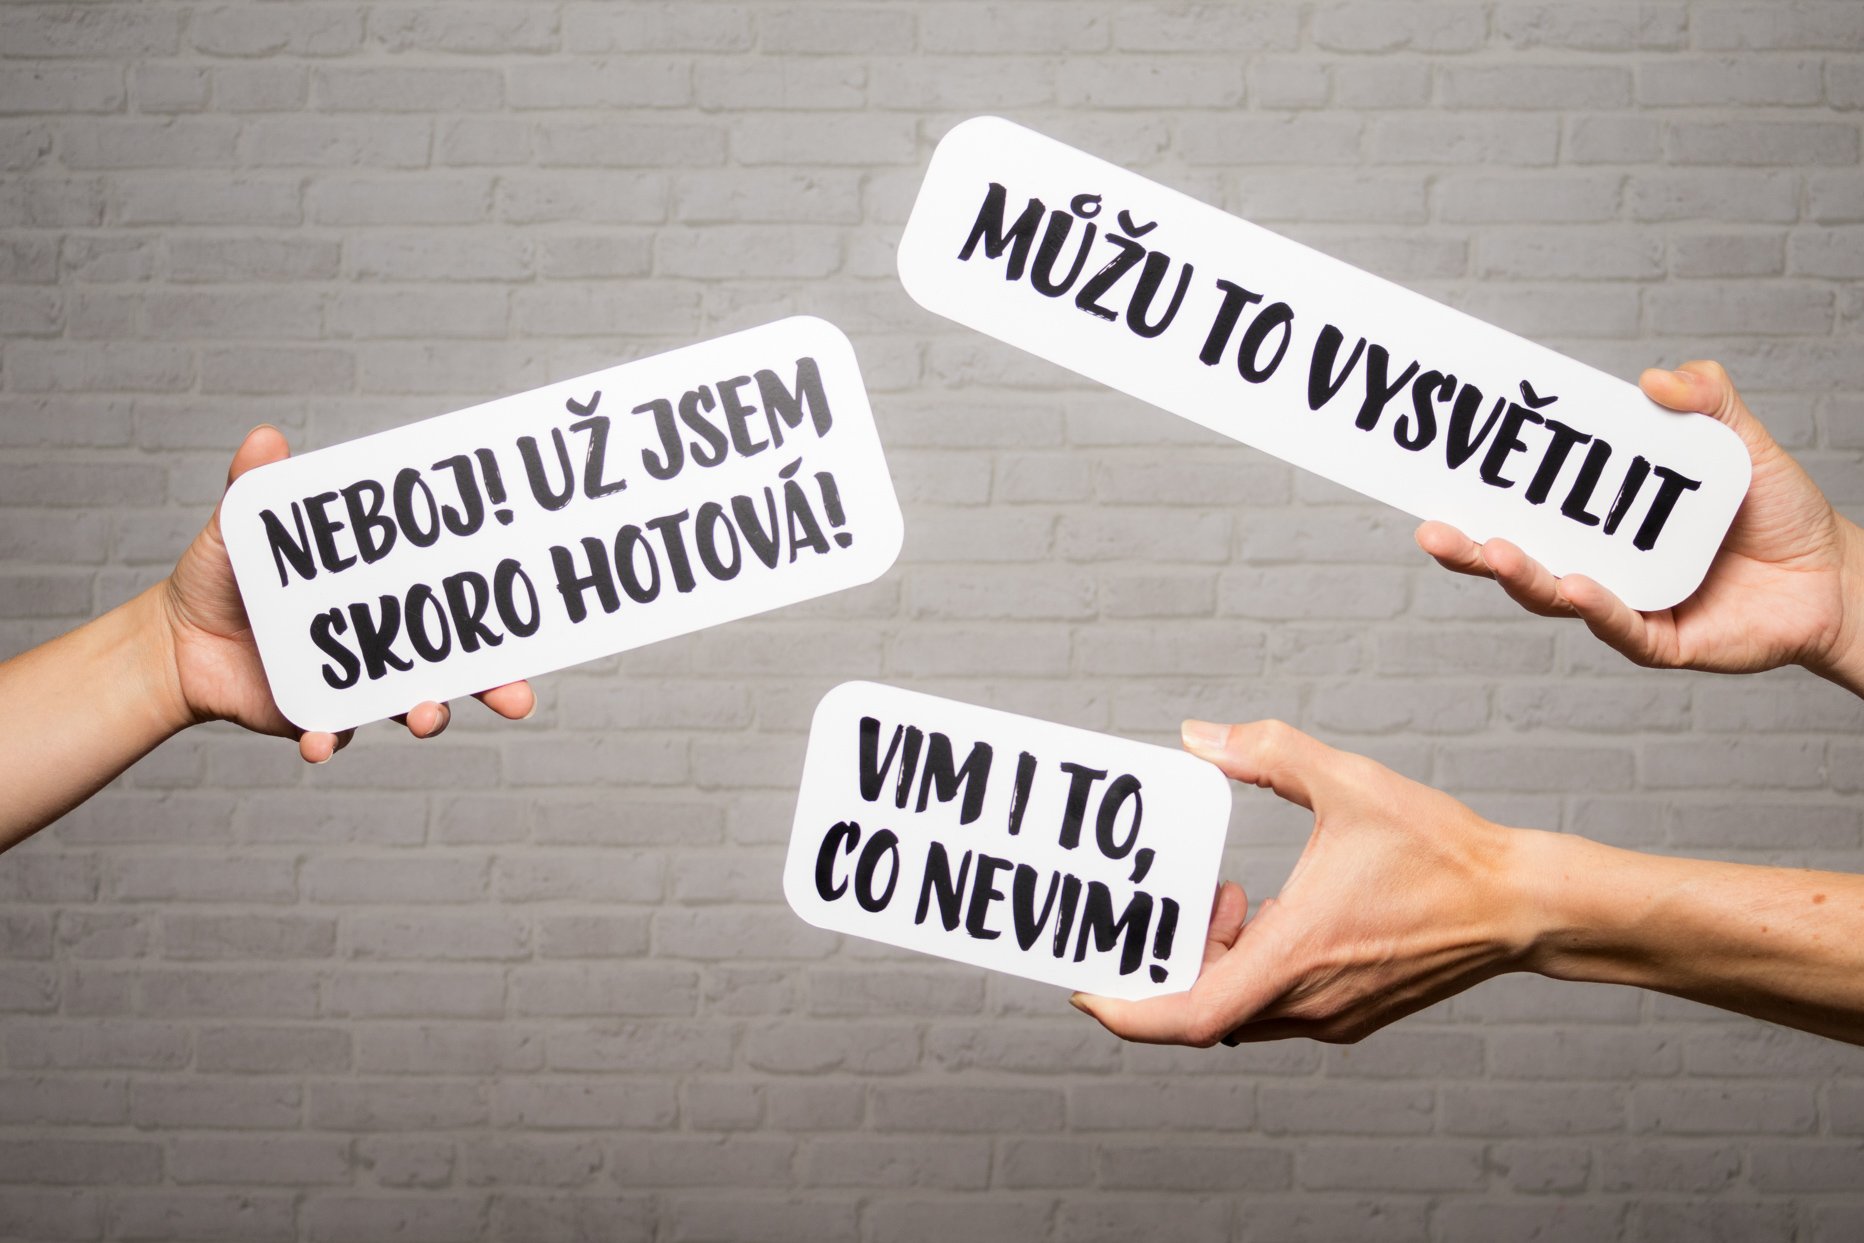 MŮŽU TO VYSVĚTLIT
NEBOJ! UŽ JSEM
SKORO HOTOVÁ!
VIM I TO,
CO NEVIM!